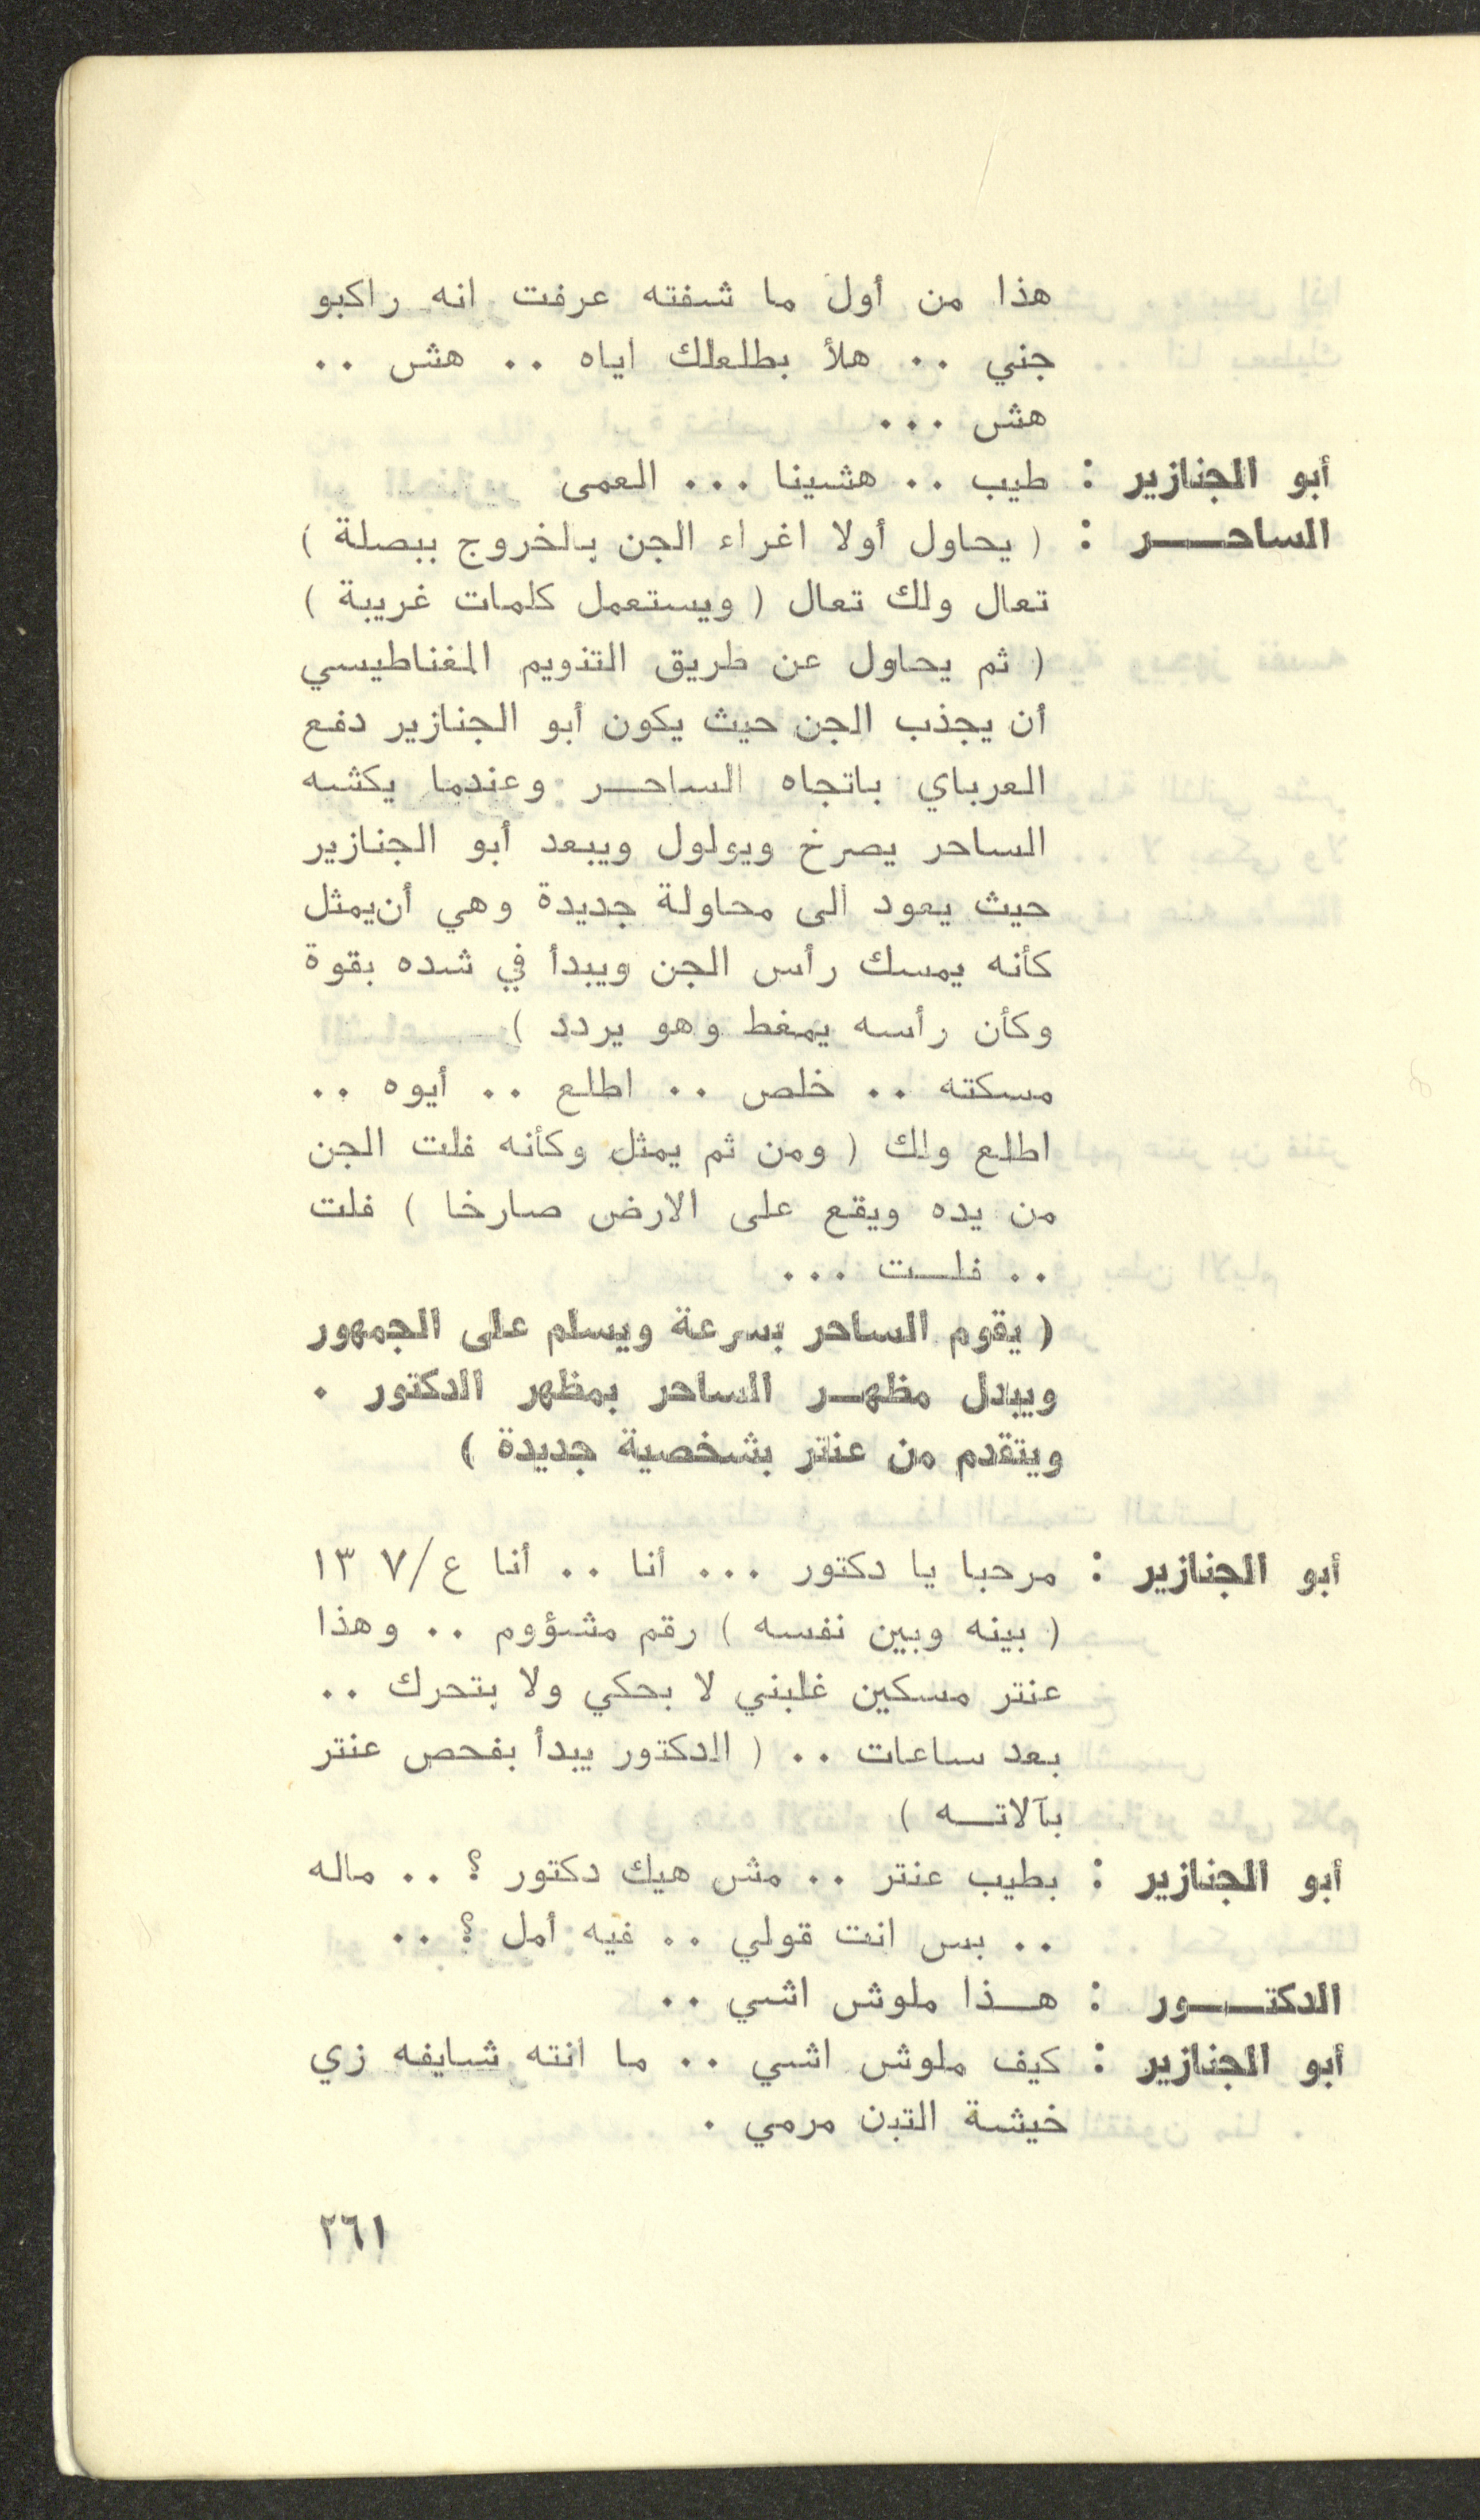 هذا من أول ما شفته عرفت انه راكبو
جني .. هلأ بطلعلك اياه .. هش ..
هش ...
أبو الجنازير : طيب .. هشينا ... العمى
الساحـــر : ( يحاول أولا اغراء الجن بالخروج ببصلة )
تعال ولك تعال ( ويستعمل كلمات غريبة )
( ثم يحاول عن طريق التنويم المغناطيسي
أن يجذب الجن حيث يكون أبو الجنازير دفع
العرباي باتجاه الساحــر وعندما يكشه
الساحر يصرخ ويولول ويبعد أبو الجنازير
حيث يعود الى محاولة جديدة وهي أن يمثل
كأنه يمسك رأس الجن ويبدأ في شده بقوة
وكأن رأسه يمغط وهو يردد )
مسكته .. خلص .. اطلع .. أيوه ..
اطلع ولك ( ومن ثم يمثل وكأنه فلت الجن
من يده ويقع على الارض صارخا ) فلت
.. فلــت ...
( يقوم الساحر بسرعة ويسلم على الجمهور
ويبدل مظهــر الساحر بمظهر الدكتور .
ويتقدم من عنتر بشخصية جديدة )
أبو الجنازير : مرحبا يا دكتور ... أنا .. أنا ع/٧ ١٣
( بينه وبين نفسه ) رقم مشؤوم .. وهذا
عنتر مسكين غلبني لا بحكي ولا بتحرك ..
بعد ساعات .. ( الدكتور يبدأ بفحص عنتر
بآلاتــه )
أبو الجنازير : بطيب عنتر .. مش هيك دكتور ؟ .. ماله
.. بس انت قولي .. فيه أمل ؟ ..
الدكتـــور : هــذا ملوش اشي ..
أبو الجنازير : كيف ملوش اشي .. ما انته شايفه زي
خيشة التبن مرمي .
٢٦١